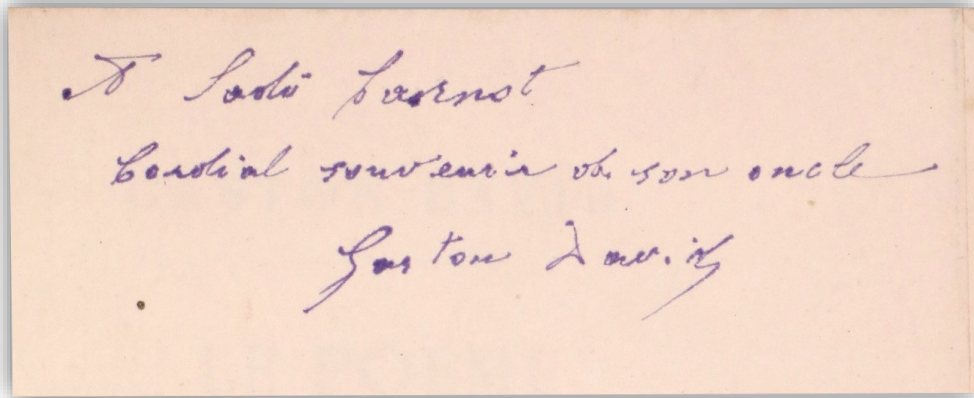 A Sadi Carnot
Cordial souvenir de son oncle
Gaston David